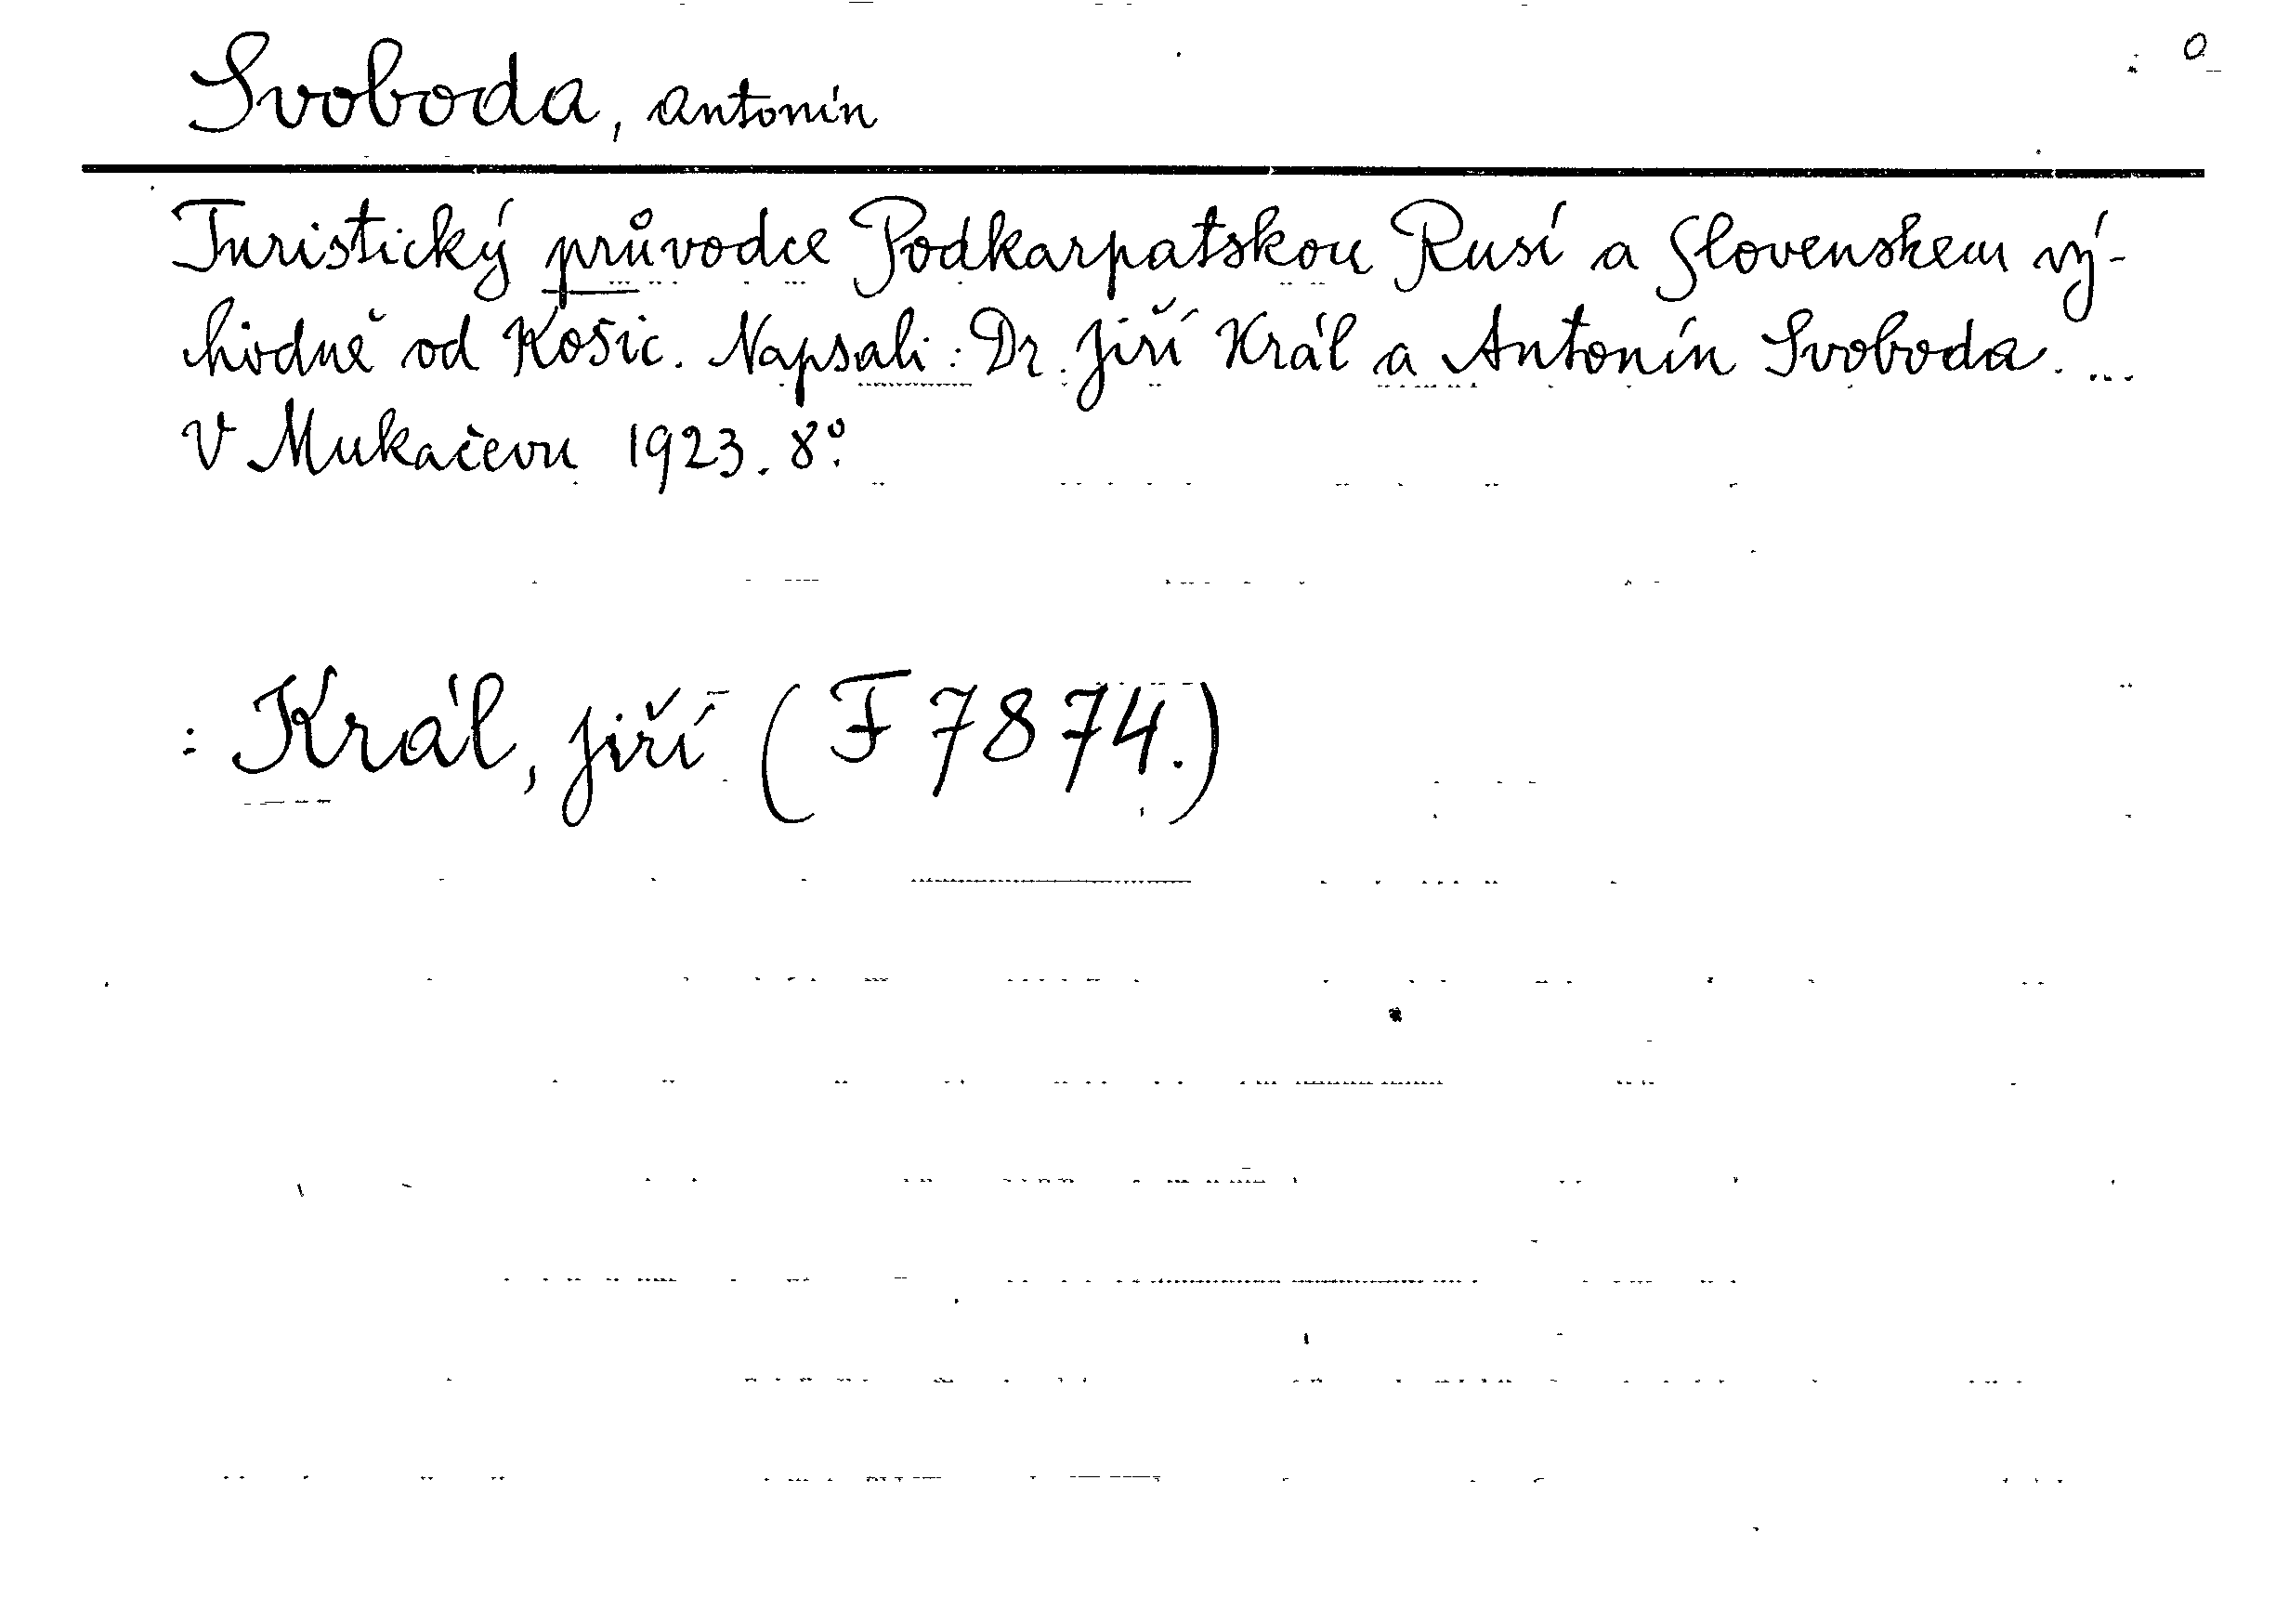 O
Svoboda, Antonín
Turistický průvodce Podkarpatskou Rusí a Slovenskem vý-
hodně od Košic. Napsali: Dr. Jiří Král a Antonín Svoboda. ...
V Mukačevu 1923. 8°.
: Král, Jiří (F 7874.)